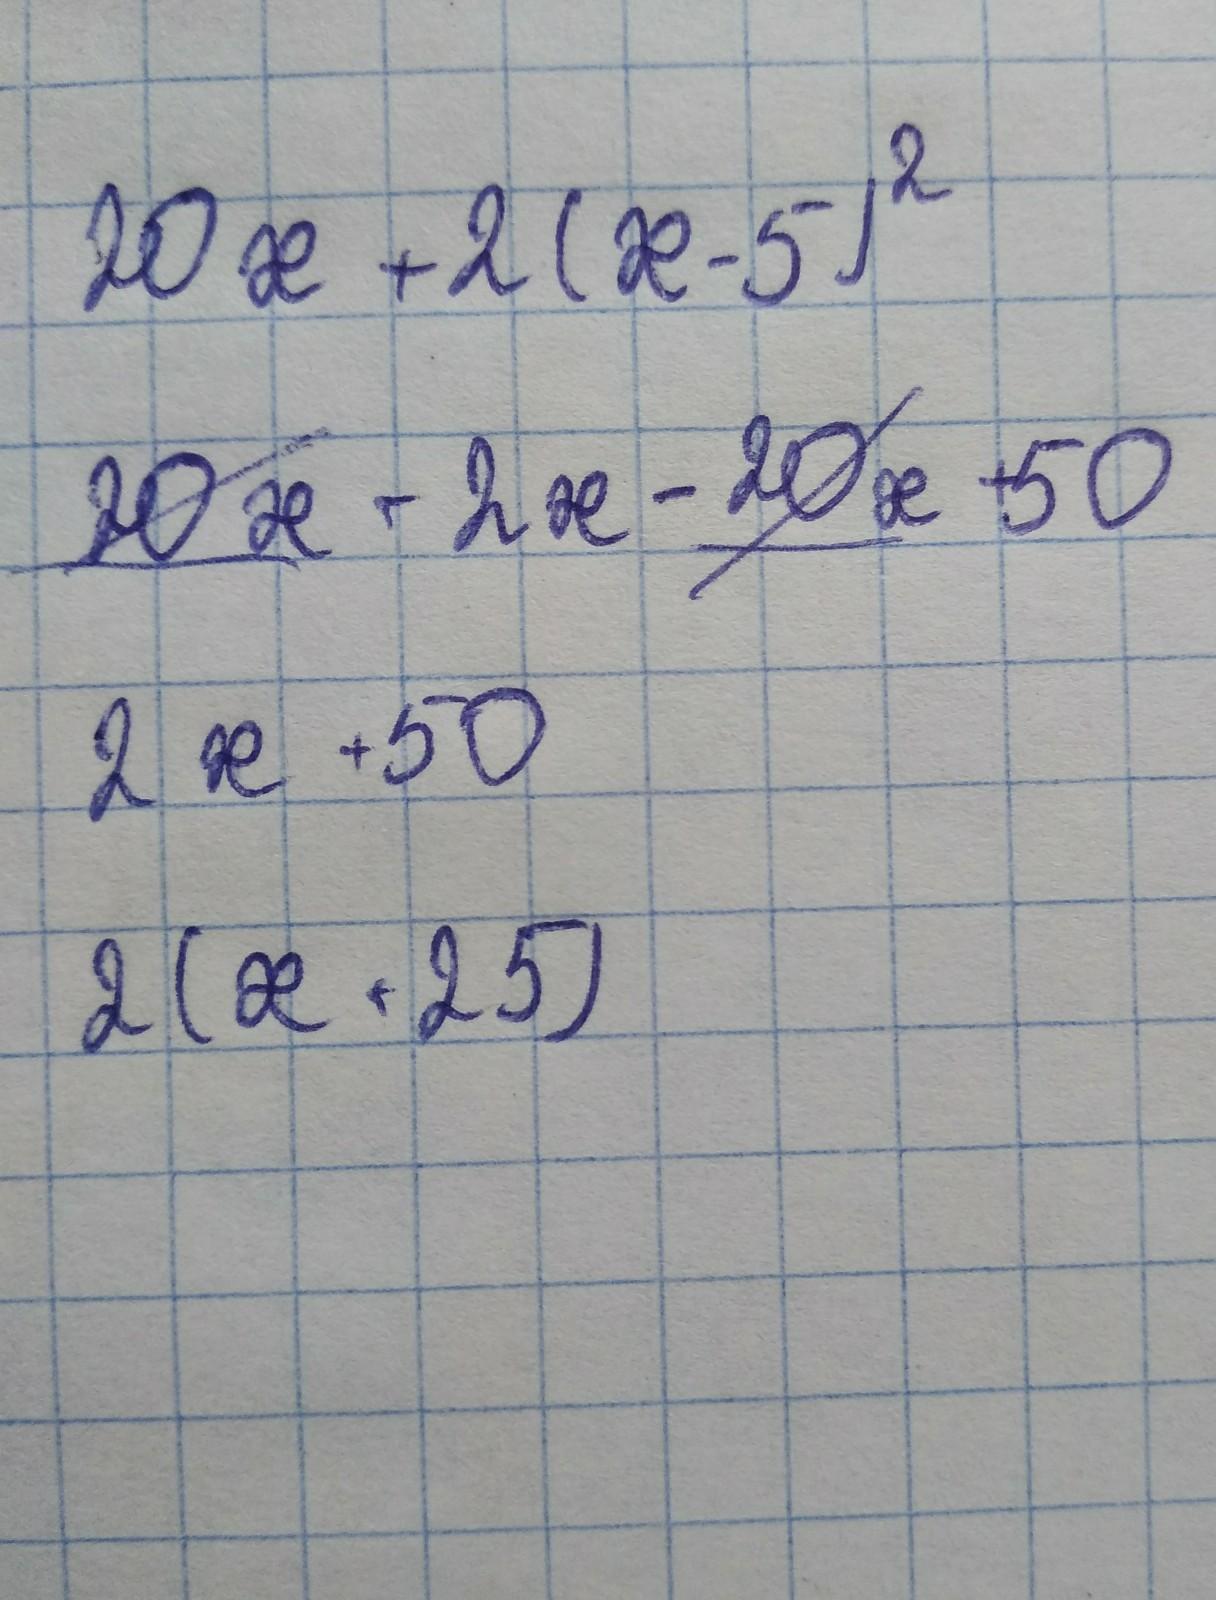 20x + 2(x-5)²
20x + 2x - 20x +50
2x +50
2(x + 25)